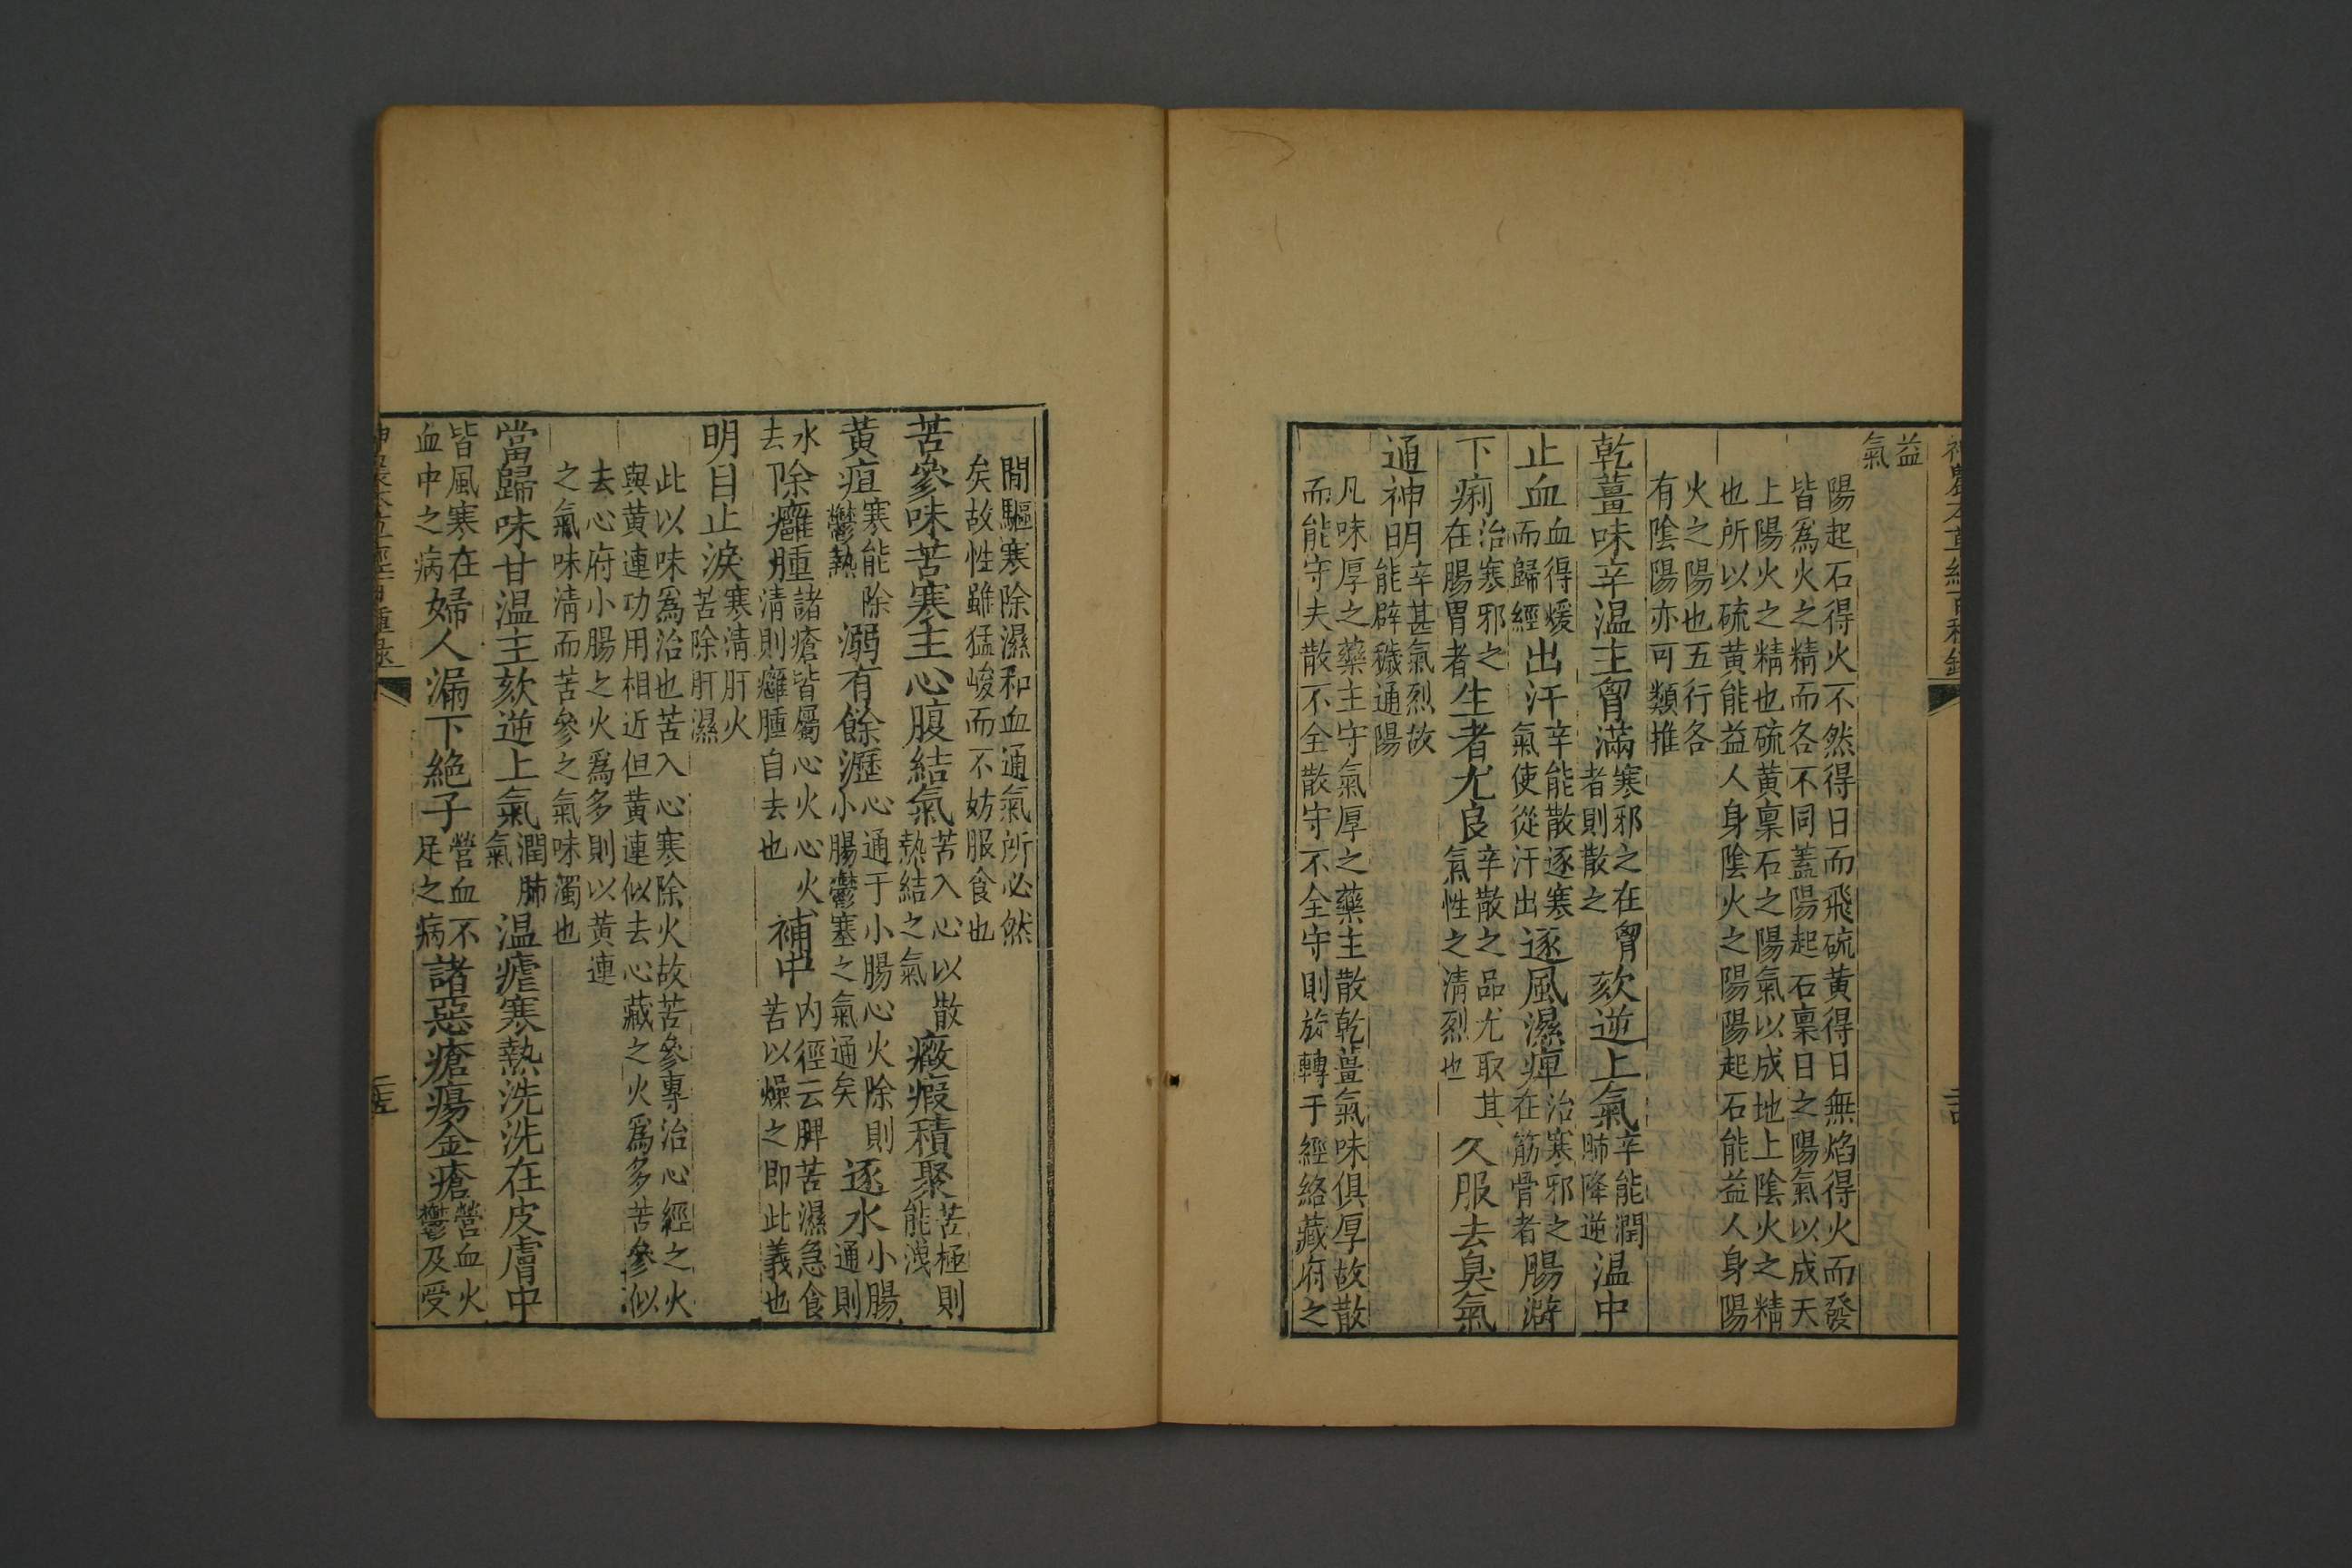 益
氣
陽起石得火不然得日而飛硫黄得日無焰得火而發
皆爲火之精而各不同蓋陽起石稟日之陽氣以成天
上陽火之精也硫黄稟石之陽氣以成地上陰火之精
也所以硫黄能益人身陰火之陽陽起石能益人身陽
火之陽也五行各
有陰陽亦可類推
乾薑味辛温主胷滿寒邪之在胷者則散之欬逆上氣辛能潤肺降逆温中
止血血得煖而歸經出汗辛能散逐寒氣使從汗出逐風濕痺治寒邪之在筋骨者腸澼
下痢治寒邪之在腸胃者生者尤良辛散之品尤取其氣性之清烈也久服去臭氣
通神明辛甚氣烈故能辟穢通陽
凡味厚之藥主守氣厚之藥主散乾薑氣味俱厚故散
而能守夫散不全散守不全守則旋轉于經絡藏府之
間驅寒除濕和血通氣所必然
矣故性雖猛峻而不妨服食也
苦參味苦寒主心腹結氣苦入心以散熱結之氣癥瘕積聚苦極則能洩
黄疸寒能除鬱熱溺有餘瀝心通于小腸心火除則小腸鬱塞之氣通矣逐水小腸通則
水去除癰腫諸瘡皆屬心火心火清則癰腫自去也補中内徑云脾苦濕急食苦以燥之即此義也
明目止淚寒清肝火苦除肝濕
此以味爲治也苦入心寒除火故苦參專治心經之火
與黄連功用相近但黄連似去心藏之火爲多苦參似
去心府小腸之火爲多則以黄連
之氣味清而苦參之氣味濁也
當歸味甘温主欬逆上氣潤肺氣温瘧寒熱洗洗在皮膚中
皆風寒在血中之病婦人漏下絶子營血不足之病諸惡瘡瘍金瘡營血火鬱及受